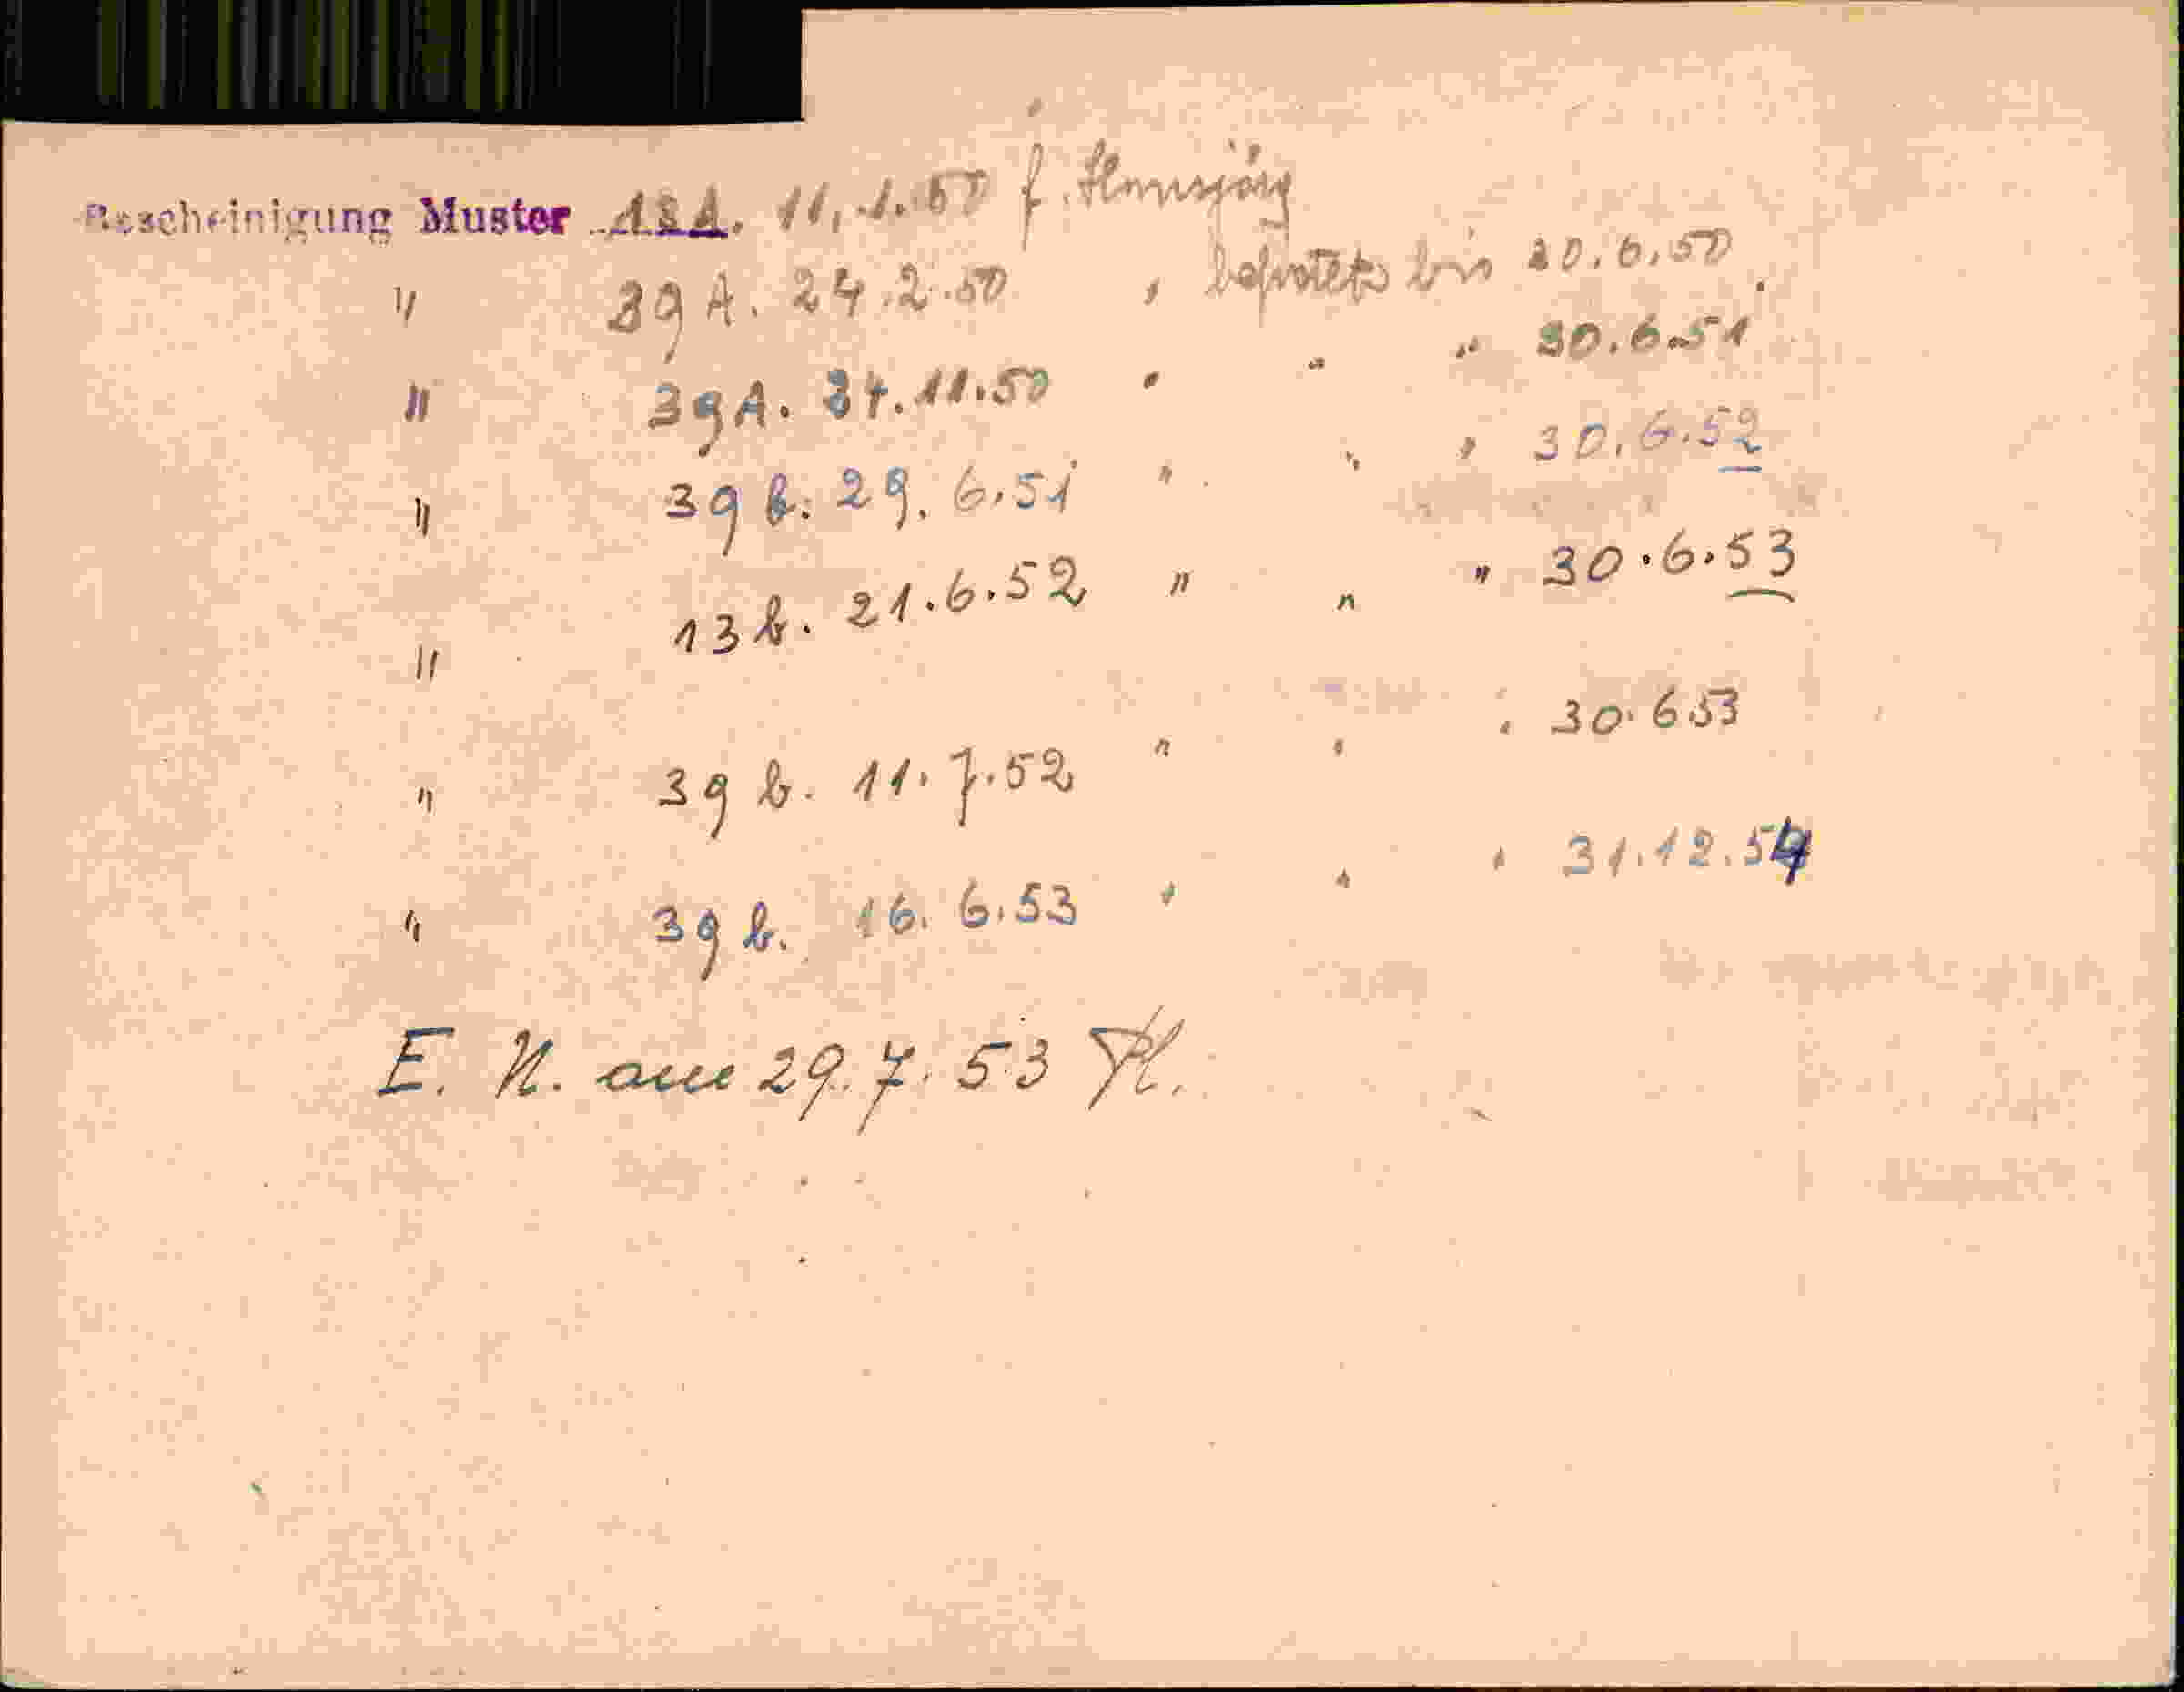 Bescheinigung Muster 12A. 11.1.50 f. Hansjörg
" 39 A. 24.2.50 , befristet bis 30.6.50.
" 39 A. 11.50 " " " 30.6.51
" 39 b. 29.6.51 " " " 30.6.52
" 13 b. 21.6.52 " " " 30.6.53
" 39 b. 11.7.52 " " " 30.6.53
" 39 b. 16.6.53 " " " 31.12.54
E. K. am 29.7.53